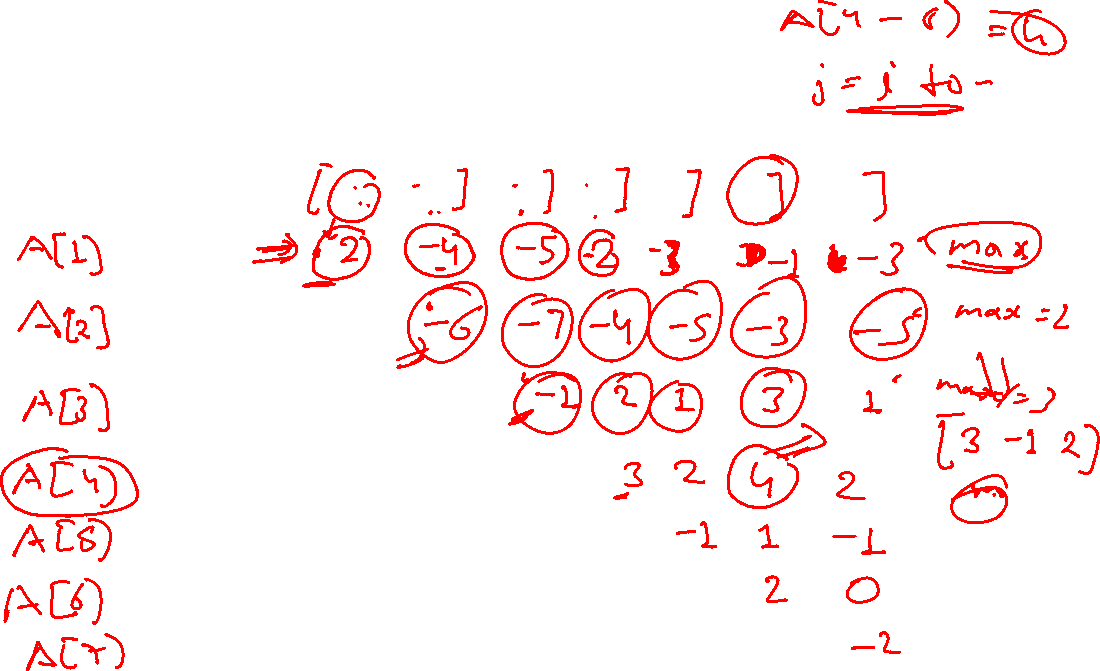 A[4 - 6) = 4
j = i to -
[ ] ] ] ] ] ]
A[1] ⇒ 2 -4 -5 -2 -3 -1 -3 max
A[2] -6 -7 -4 -5 -3 -5 max = 2
A[3] -1 2 1 3 1 max = 3
[3 -1 2]
A[4] 3 2 4 2
A[5] -1 1 -1
A[6] 2 0
A[7] -2